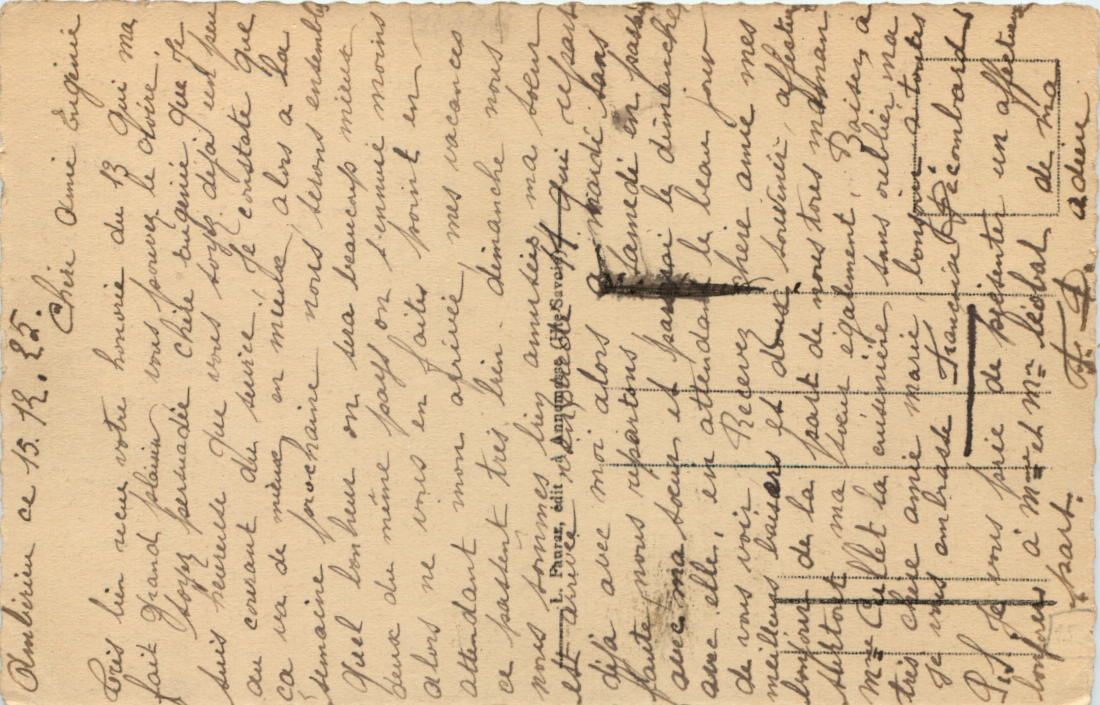 Ambérieu ce 15. 12. 25.
Chère amie Eugénie
Très bien reçu votre honorée du 13 qui ma
fait grand plaisir vous pouvez le croire;
soyez persuadée chère Eugénie que je
suis heureuse que vous soyez déjà un peu
au courant du service! Je constate que
ça va de mieux en mieux, alors à la
semaine prochaine nous serons ensemble
quel bonheur on sera beaucoup mieux
deux du même pays on s'ennuie moins
alors ne vous en faites point en
attendant mon arrivée, mes vacances
ce passent très bien. dimanche nous
nous sommes bien amusées ma sœur
et arrivée qui repart
déjà avec moi alors mardi sans
faute nous repartons
avec ma sœur et le dimanche
avec elle, en attendant le beau jour
de vous voir Recevez chère amie mes
meilleurs baisers et doux souvenir, affectueux
bonjour de la part de nous tous maman
surtout ma sœur également! Baisez à
Mme la cuisinière sans oublier ma
très chère amie marie, bonjour à toutes
je vous embrasse Françoise Récombard
P.S. Je vous prie de présenter un affectueux
bonjour à Mme et Mr de ma
part. F. R. adieu
J. Fauvet, édit. à Annemasse (Hte-Savoie)